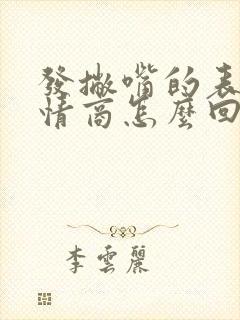 發撇嘴的表
情商怎麼回
李雲麗